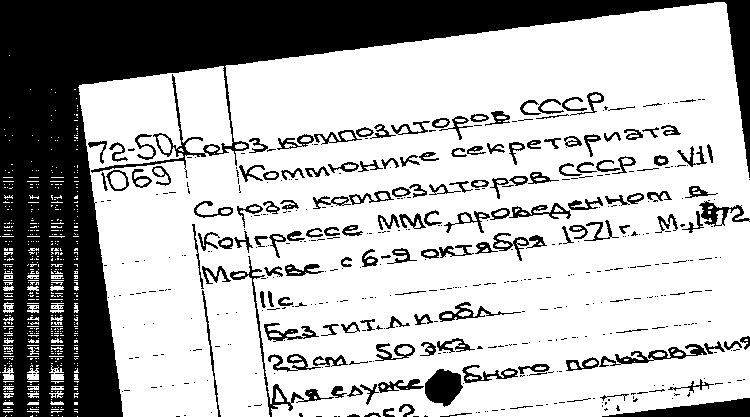 72-50к Союз композиторов СССР.
1069 Коммюнике секретариата
Союза композиторов СССР о VII
Конгрессе ММС, проведенном в
Москве с 6-9 октября 1971 г. М., 1972
11 с.
Без тит. л. и обл.
29 см. 50 экз.
Для служебного пользования